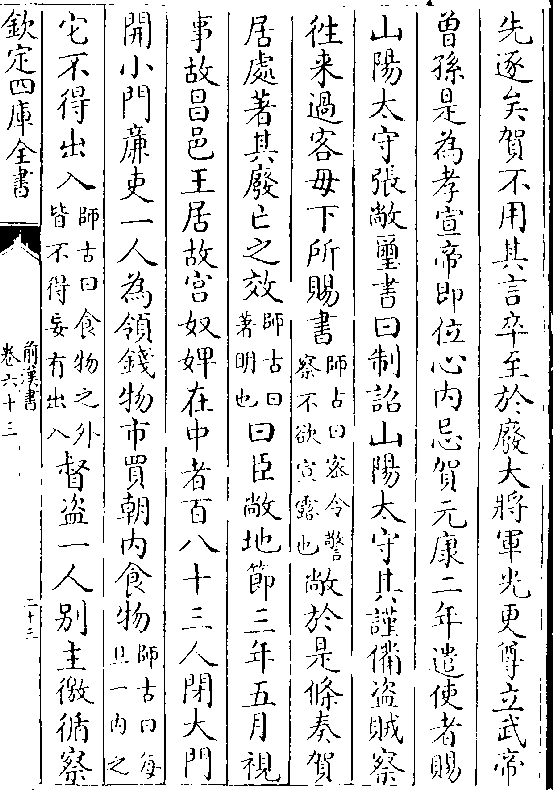 先逐矣賀不用其言卒至於廢大將軍光更尊立武帝
曾孫是為孝宣帝即位心内忌賀元康二年遣使者賜
山陽太守張敞璽書曰制詔山陽太守其謹備盗賊察
徃来過客毋下所賜書師古曰宻令警察不欲宣露也敞於是條奏賀
居處著其廢亡之效師古曰著明也曰臣敞地節三年五月視
事故昌邑王居故宫奴婢在中者百八十三人閉大門
開小門㢘吏一人為領錢物市買朝内食物師古曰每旦一内之
它不得出入師古曰食物之外皆不得妄有出入督盗一人别主徼循察
欽定四庫全書
前漢書
卷六十三
二十三